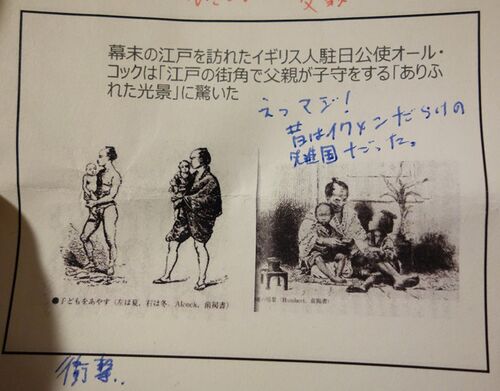 幕末の江戸を訪れたイギリス人駐日公使オール・
コックは「江戸の街角で父親が子守をする「ありふ
れた光景」に驚いた
えっマジ!
昔はイクメンだらけの
先進国だった。
●子どもをあやす(左は夏,右は冬. Alcock, 前掲書)
Humbert, 前掲書)
衝撃..